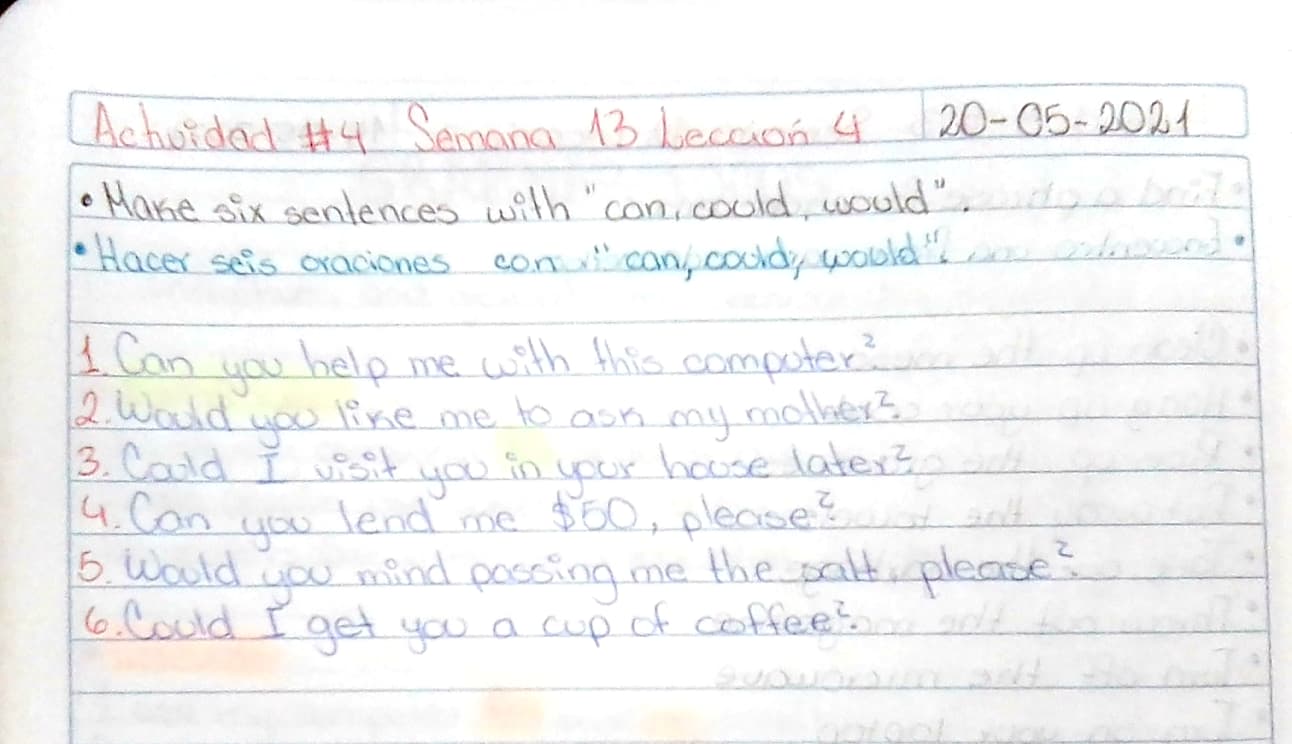 Actividad #4 Semana 13 Lección 4 20-05-2021
• Make six sentences with "can, could, would".
• Hacer seis oraciones con "can, could, would".
1. Can you help me with this computer?
2. Would you like me to ask my mother?
3. Could I visit you in your house later?
4. Can you lend me $50, please?
5. Would you mind passing me the salt, please?
6. Could I get you a cup of coffee?